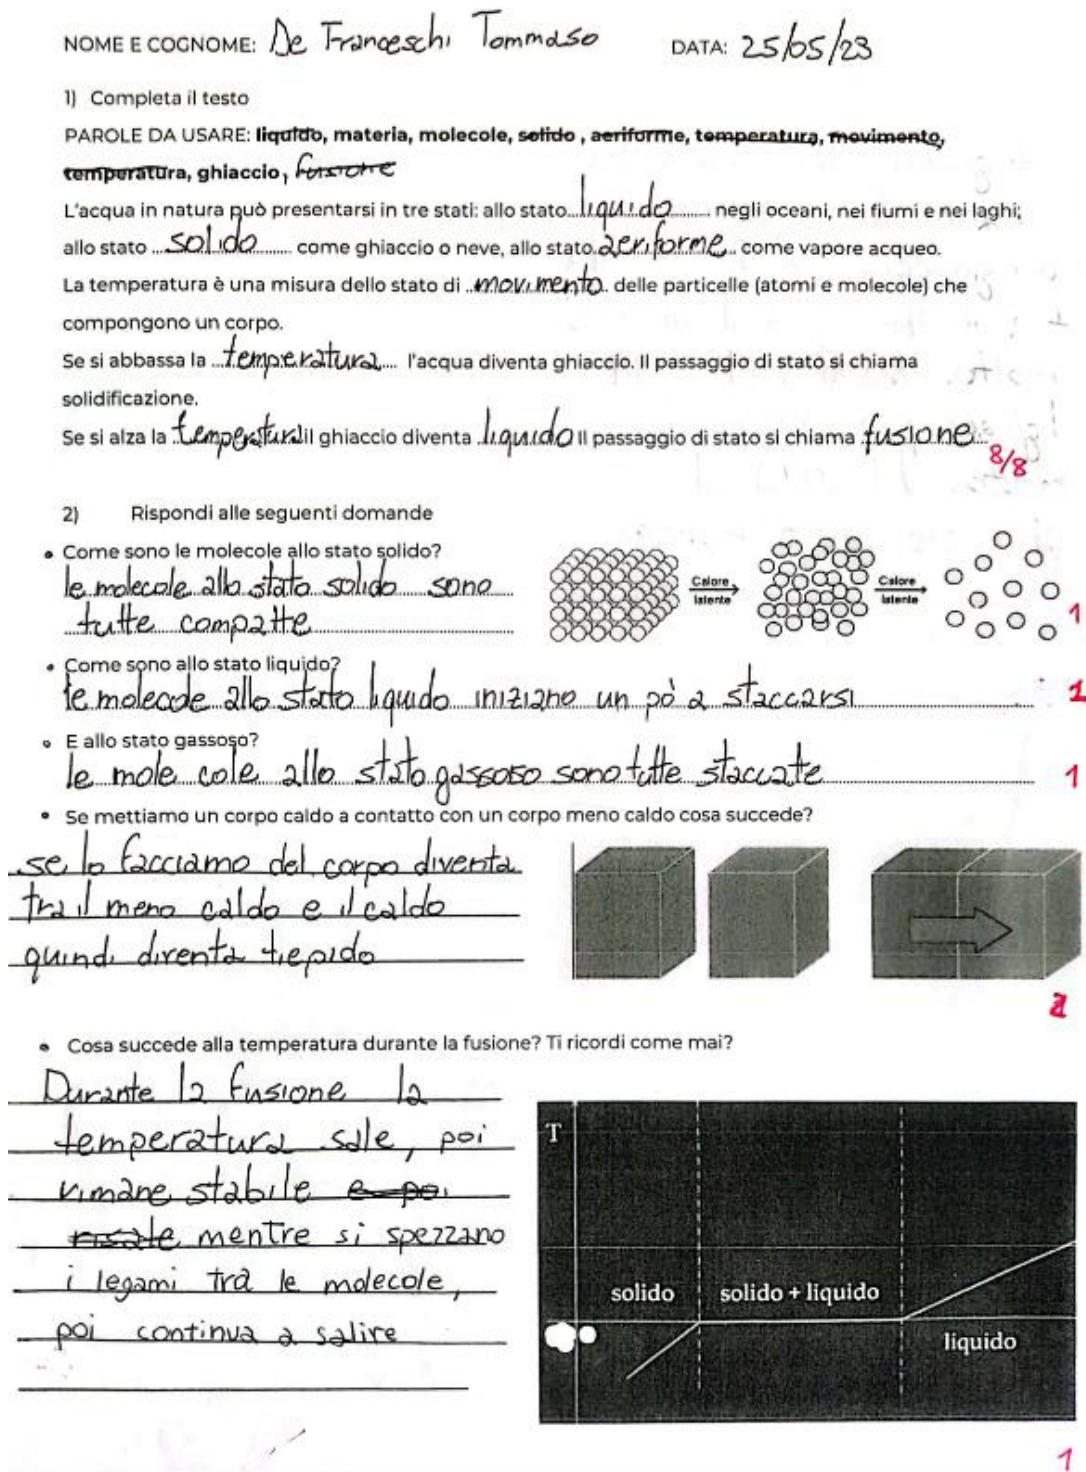 NOME E COGNOME: De Franceschi Tommaso DATA: 25/05/23
1) Completa il testo
PAROLE DA USARE: liquido, materia, molecole, solido , aeriforme, temperatura, movimento,
temperatura, ghiaccio, fusione
L'acqua in natura può presentarsi in tre stati: allo stato liquido negli oceani, nei fiumi e nei laghi;
allo stato solido come ghiaccio o neve, allo stato aeriforme come vapore acqueo.
La temperatura è una misura dello stato di movimento delle particelle (atomi e molecole) che
compongono un corpo.
Se si abbassa la temperatura l'acqua diventa ghiaccio. Il passaggio di stato si chiama
solidificazione.
Se si alza la temperatura il ghiaccio diventa liquido Il passaggio di stato si chiama fusione
8/8
2) Rispondi alle seguenti domande
• Come sono le molecole allo stato solido?
le molecole allo stato solido sono
tutte compatte
Calore latente
Calore latente
1
• Come sono allo stato liquido?
le molecole allo stato liquido iniziano un pò a staccarsi
1
• E allo stato gassoso?
le mole cole allo stato gassoso sono tutte staccate
1
• Se mettiamo un corpo caldo a contatto con un corpo meno caldo cosa succede?
se lo facciamo del corpo diventa
tra il meno caldo e il caldo
quindi diventa tiepido
• Cosa succede alla temperatura durante la fusione? Ti ricordi come mai?
Durante la fusione la
temperatura sale, poi
rimane stabile e poi
risale mentre si spezzano
i legami tra le molecole,
poi continua a salire
T
solido
solido + liquido
liquido
1